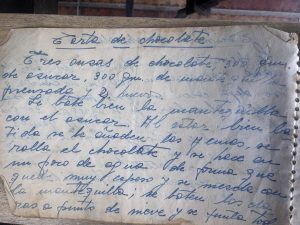 Tarta de chocolate
Tres onzas de chocolate 300 gm
de azucar, 300 gm. de mante
y 2 huevos
Se bate bien la mantequilla
con el azucar. Al estar bien ba
tida se le añaden las yemas, se
rolla el chocolate y se pone en
un poco de agua de forma que
quede muy espeso y se mezcla con
la mantequilla; se baten las cla
ras a punto de nieve y se junta tod